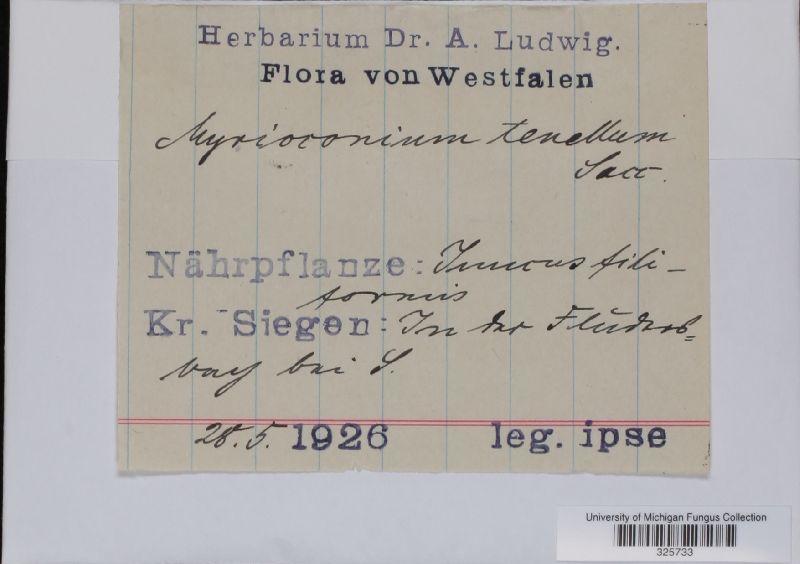 Herbarium Dr. A. Ludwig.
Flora von Westfalen
Myrioconium tenellum
Sacc.
Nährpflanze: Juncus fili-
formis
Kr. Siegen: In der
bei S.
28.5. 1926 leg. ipse
University of Michigan Fungus Collection
325733